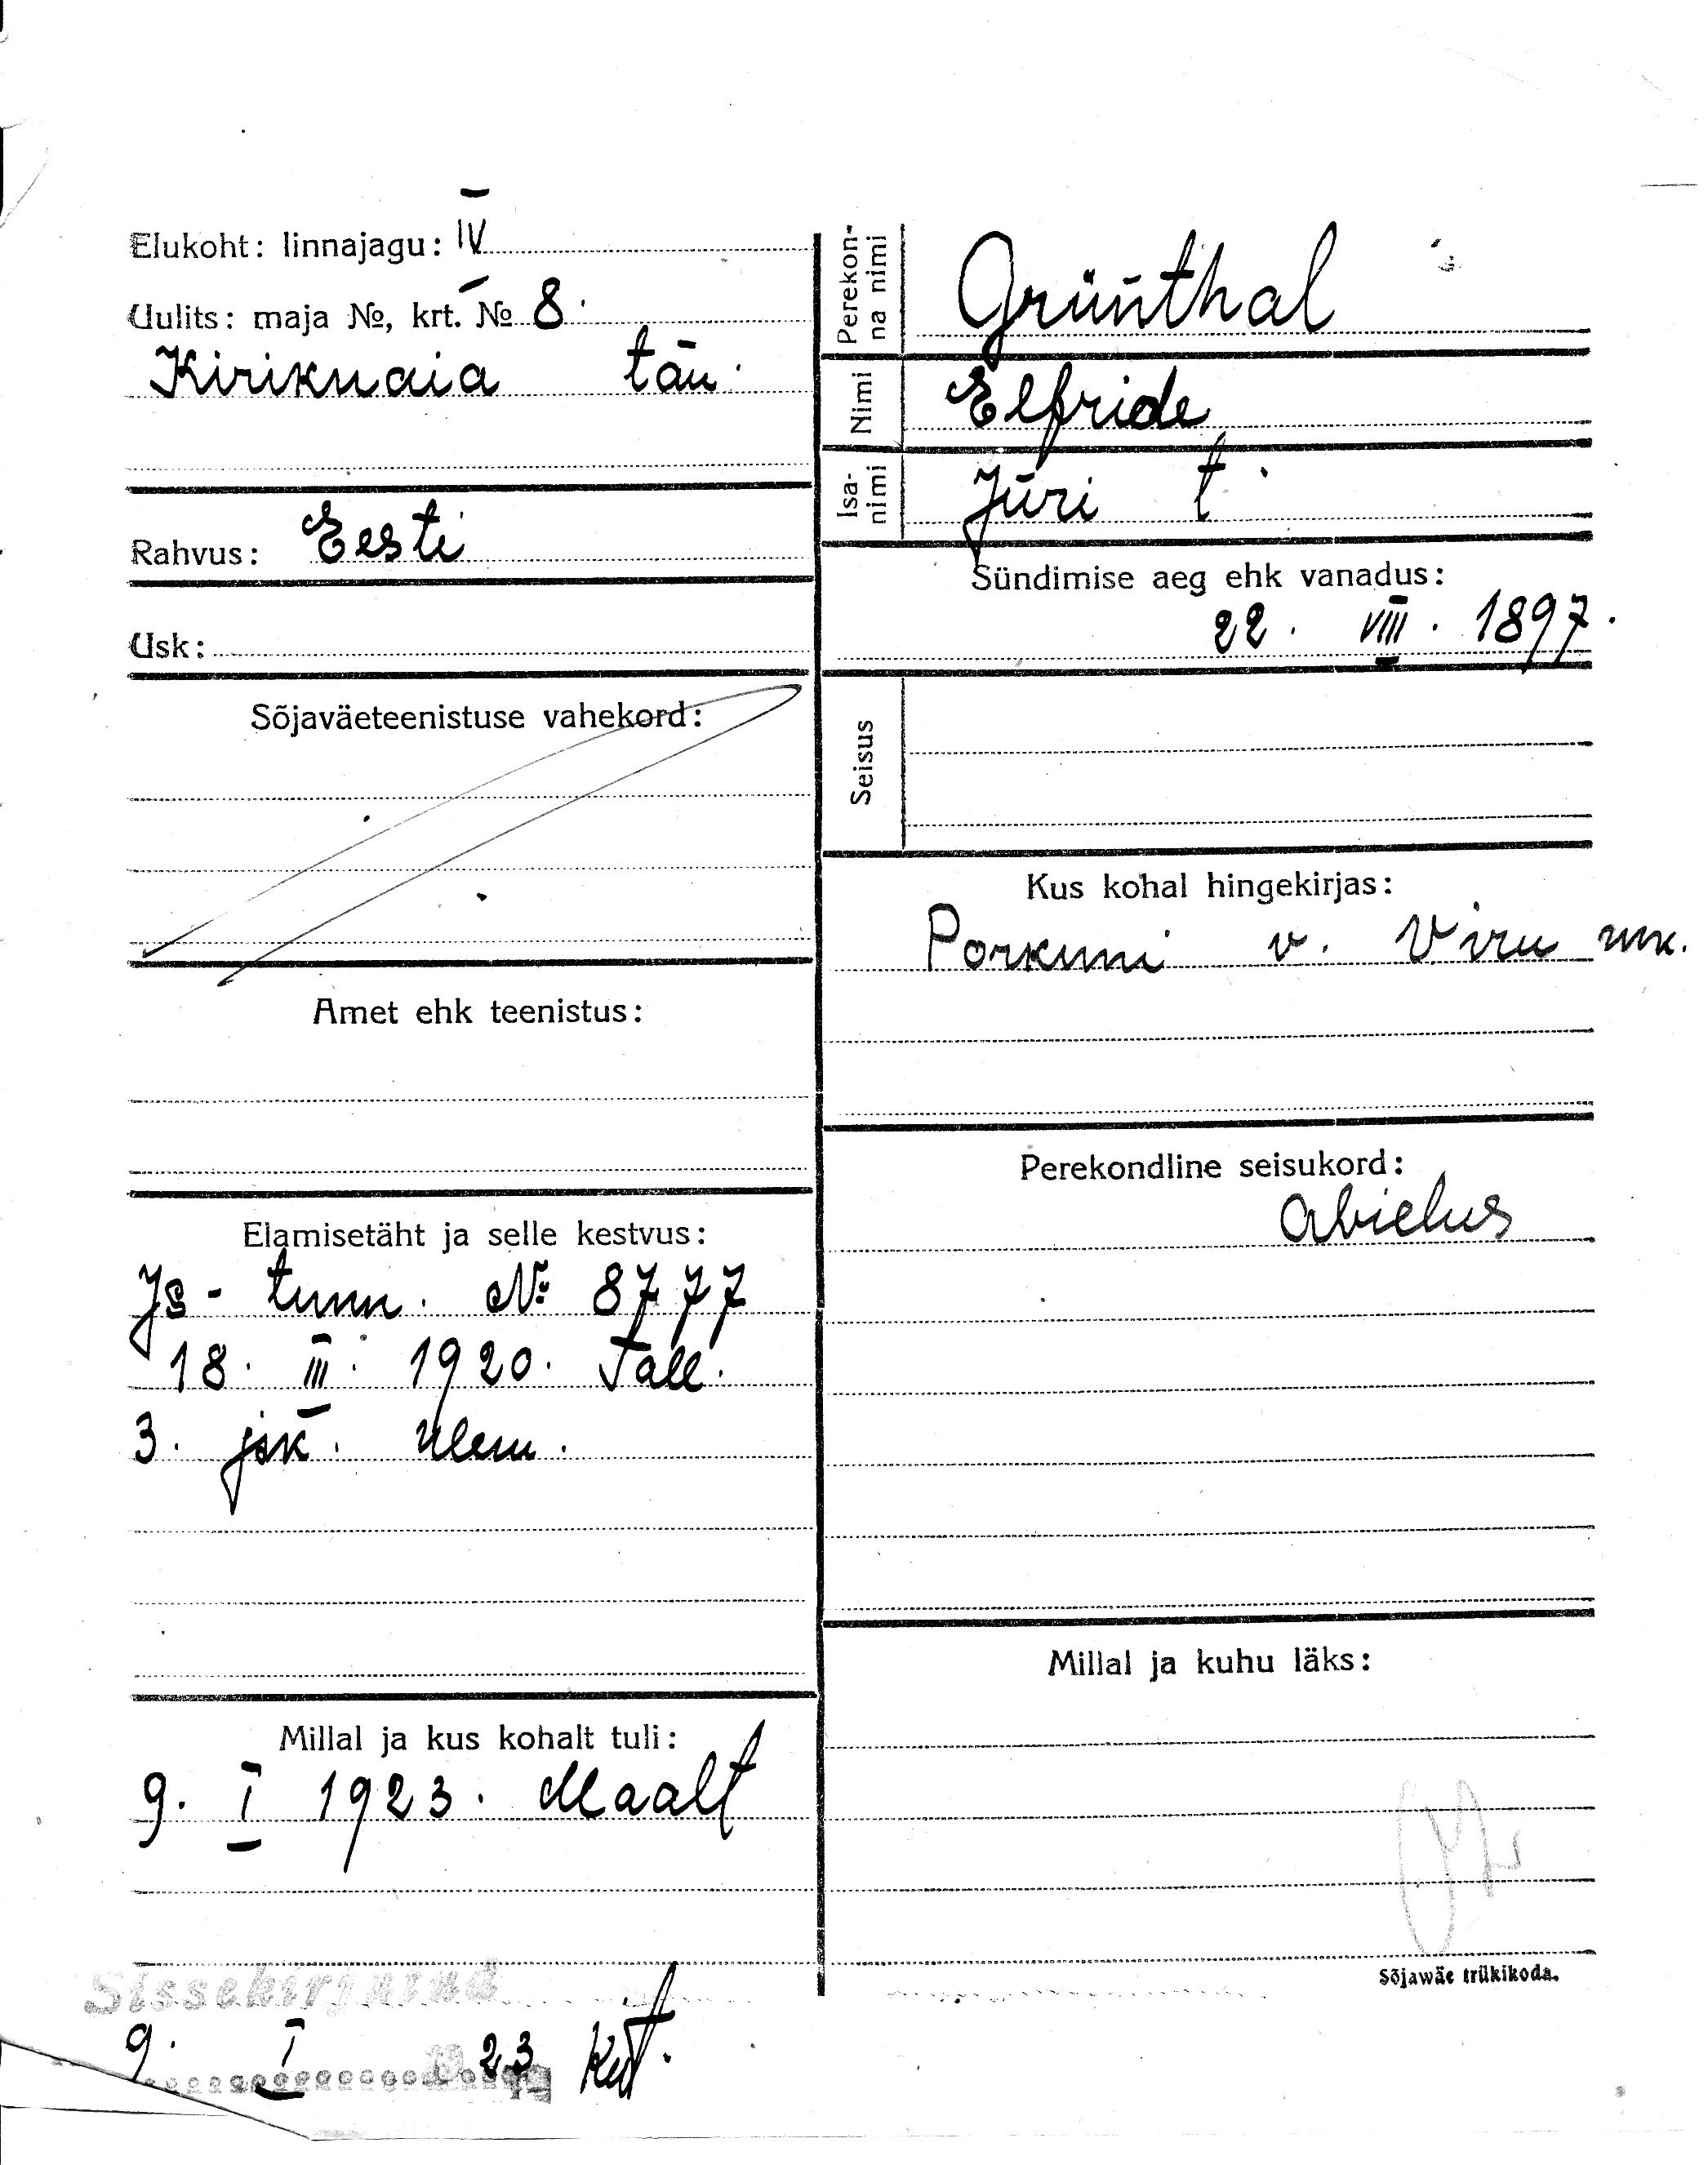 Elukoht: linnajagu: IV
Uulits: maja №, krt. № 8.
Kirikuaia tän.
Rahvus: Eesti
Usk:
Sõjaväeteenistuse vahekord:
Amet ehk teenistus:
Elamisetäht ja selle kestvus:
Js-tunn. № 8777
18. III. 1920. Tall.
3. jsk. ülem.
Millal ja kus kohalt tuli:
9. I 1923. Maalt
Sissekirjutud
9. I 1923
Perekonna nimi
Grünthal
Nimi
Elfride
Isanimi
Jüri t.
Sündimise aeg ehk vanadus:
22. VIII. 1897.
Seisus
Kus kohal hingekirjas:
Porkuni v. Viru mk.
Perekondline seisukord:
abielus
Millal ja kuhu läks:
Sõjawäe trükikoda.